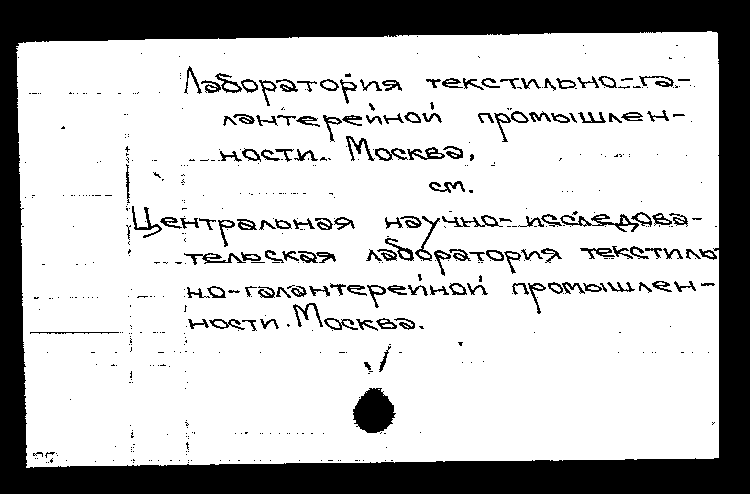 Лаборатория текстильно-га-
лантерейной промышлен-
ности. Москва,
см.
Центральная научно-исследова-
тельская лаборатория текстиль
но-галантерейной промышлен-
ности. Москва.